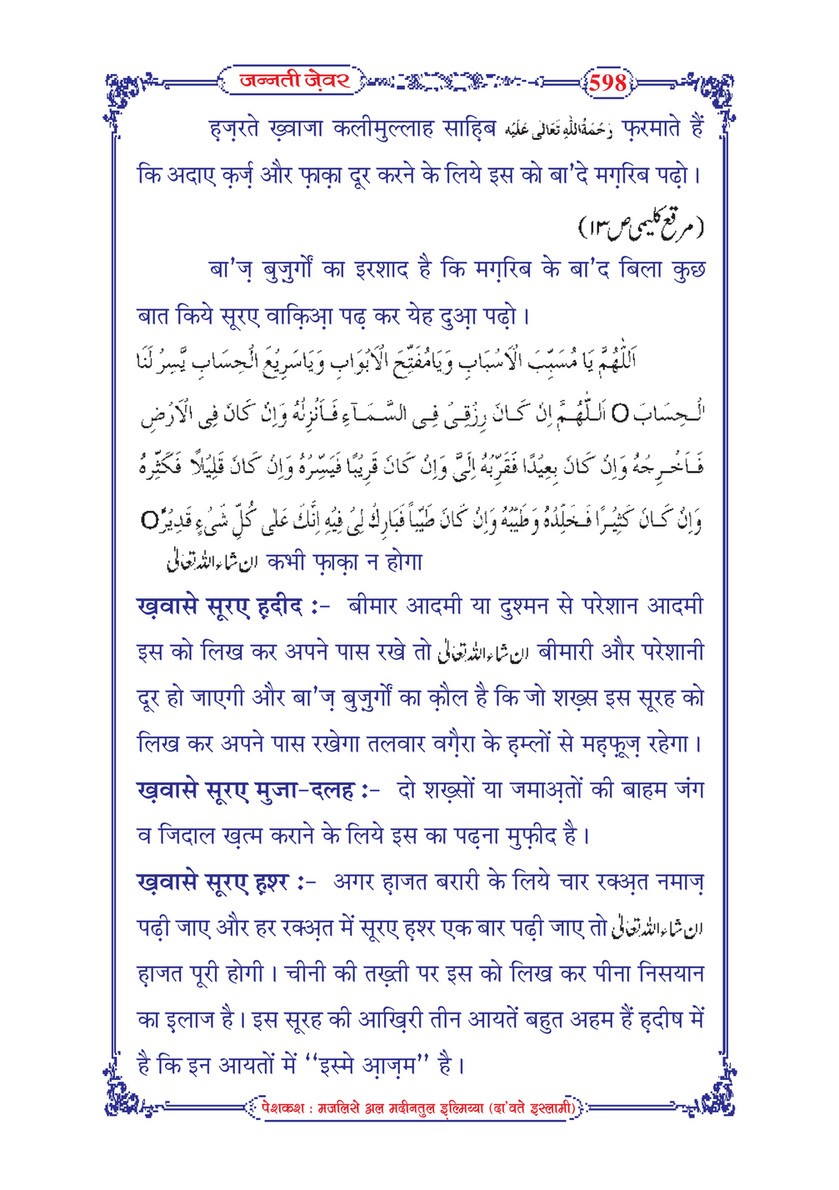 जन्नती ज़ेवर
598
ह़ज़रते ख़्वाजा कलीमुल्लाह साह़िब رَحْمَةُاللّٰهِ تَعَالٰى عَلَيْه फ़रमाते हैं
कि अदाए क़र्ज़ और फ़ाक़ा दूर करने के लिये इस को बा'दे मग़रिब पढो़ ।
(مرقع کلیمی ص۱۳)
बा'ज़ बुज़ुर्गों का इरशाद है कि मग़रिब के बा'द बिला कुछ
बात किये सूरए वाक़िआ़ पढ़ कर येह दुआ़ पढो़ ।
اَللّٰهُمَّ يَا مُسَبِّبَ الْاَسْبَابِ وَيَامُفَتِّحَ الْاَبْوَابِ وَيَاسَرِيْعَ الْحِسَابِ يَسِّرْ لَنَا
الْحِسَابَ O اَللّٰهُمَّ اِنْ كَانَ رِزْقِىْ فِى السَّمَآءِ فَاَنْزِلْهُ وَاِنْ كَانَ فِى الْاَرْضِ
فَاَخْرِجْهُ وَاِنْ كَانَ بَعِيْدًا فَقَرِّبْهُ اِلَىَّ وَاِنْ كَانَ قَرِيْبًا فَيَسِّرْهُ وَاِنْ كَانَ قَلِيْلًا فَكَثِّرْهُ
وَاِنْ كَانَ كَثِيْرًا فَخَلِّدْهُ وَطَيِّبْهُ وَاِنْ كَانَ طَيِّباً فَبَارِكْ لِىْ فِيْهِ اِنَّكَ عَلٰى كُلِّ شَىْءٍ قَدِيْرٌ O
ان شاء اللہ تعالٰی कभी फ़ाक़ा न होगा
ख़वासे सूरए ह़दीद :- बीमार आदमी या दुश्मन से परेशान आदमी
इस को लिख कर अपने पास रखे तो ان شاء اللہ تعالٰی बीमारी और परेशानी
दूर हो जाएगी और बा'ज़ बुज़ुर्गों का क़ौल है कि जो शख़्स इस सूरह को
लिख कर अपने पास रखेगा तलवार वगै़रा के ह़म्लों से मह़फ़ूज़ रहेगा ।
ख़वासे सूरए मुजा-दलह :- दो शख़्सों या जमाअ़तों की बाहम जंग
व जिदाल ख़त्म कराने के लिये इस का पढ़ना मुफ़ीद है ।
ख़वासे सूरए ह़श्र :- अगर ह़ाजत बरारी के लिये चार रक्अ़त नमाज़
पढ़ी जाए और हर रक्अ़त में सूरए ह़श्र एक बार पढ़ी जाए तो ان شاء اللہ تعالٰی
ह़ाजत पूरी होगी । चीनी की तख़्ती पर इस को लिख कर पीना निसयान
का इ़लाज है । इस सूरह की आख़िरी तीन आयतें बहुत अहम हैं ह़दीष में
है कि इन आयतों में ‘‘इस्मे आ़ज़म’’ है ।
पेशकश : मजलिसे अल मदीनतुल इ़ल्मिय्या (दा'वते इस्लामी)